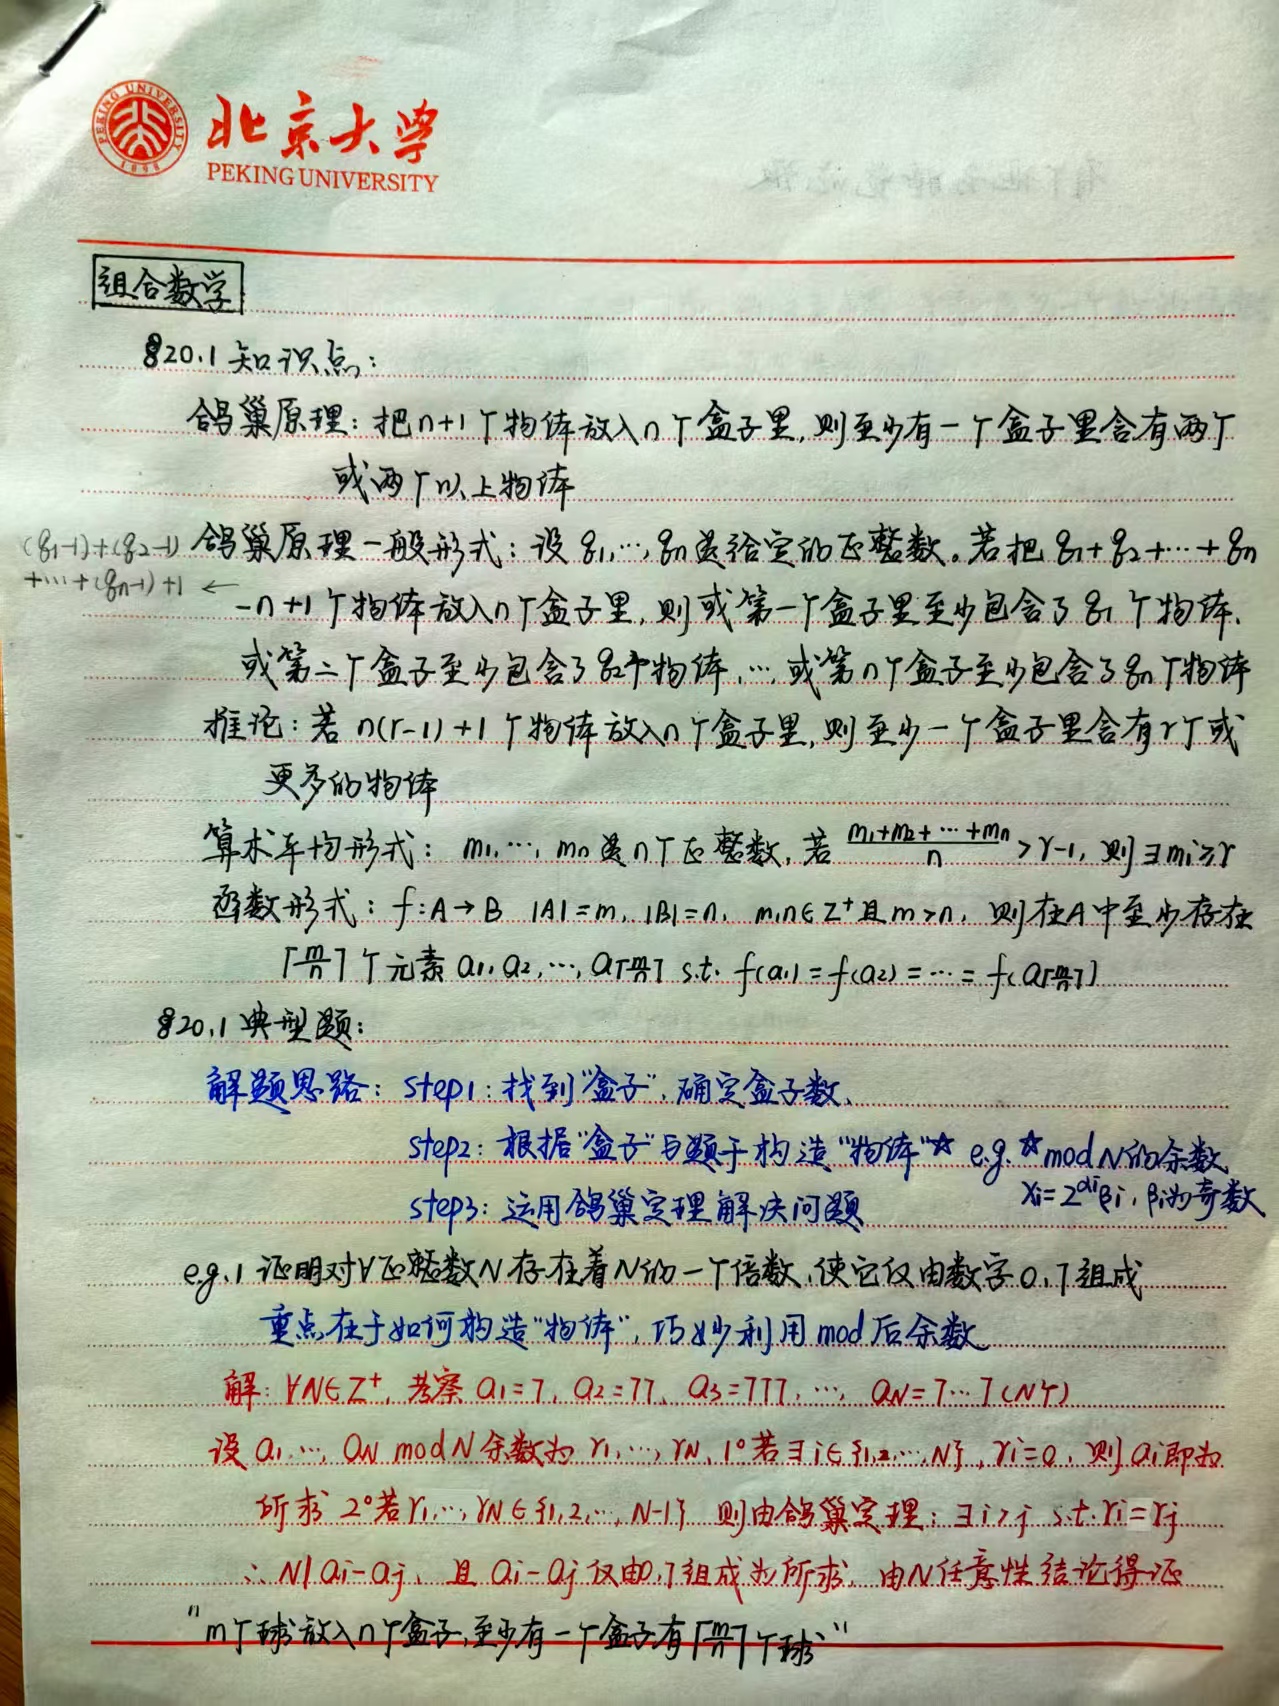 北京大学
PEKING UNIVERSITY
PEKING UNIVERSITY
1898
组合数学
§20.1 知识点:
鸽巢原理: 把n+1个物体放入n个盒子里,则至少有一个盒子里含有两个
或两个以上物体
(q1-1)+(q2-1)
+…+(qn-1)+1 ←
鸽巢原理一般形式: 设 q1,…,qn是给定的正整数。若把 q1+q2+…+qn
-n+1个物体放入n个盒子里,则或第一个盒子里至少包含了q1个物体,
或第二个盒子至少包含了q2个物体,…,或第n个盒子至少包含了qn个物体
推论: 若 n(r-1)+1 个物体放入n个盒子里,则至少一个盒子里含有r个或
更多的物体
算术平均形式: m1,…,mn是n个正整数,若 (m1+m2+…+mn)/n >r-1, 则∃mi≥r
函数形式: f:A→B |A|=m, |B|=n, m,n∈Z⁺且m>n, 则在A中至少存在
⌈m/n⌉个元素 a1,a2,…,a⌈m/n⌉ s.t. f(a1)=f(a2)=…=f(a⌈m/n⌉)
§20.1 典型题:
解题思路: step1: 找到“盒子”,确定盒子数,
step2: 根据“盒子”与题干构造“物体”☆ e.g.☆ mod N的余数
xi=2^αi βi, βi为奇数
step3: 运用鸽巢定理解决问题
e.g.1 证明对∀正整数N存在着N的一个倍数,使它仅由数字0,7组成
重点在于如何构造“物体”,巧妙利用mod后余数
解: ∀N∈Z⁺, 考察 a1=7, a2=77, a3=777,…, aN=7…7(N个)
设 a1,…,aN mod N 余数为 r1,…,rN, 1°若∃i∈{1,2,…,N}, ri=0, 则ai即为
所求 2°若r1,…,rN∈{1,2,…,N-1} 则由鸽巢定理: ∃i>j s.t. ri=rj
∴N|ai-aj, 且 ai-aj仅由0,7组成为所求, 由N任意性结论得证
“m个球放入n个盒子,至少有一个盒子有⌈m/n⌉个球”